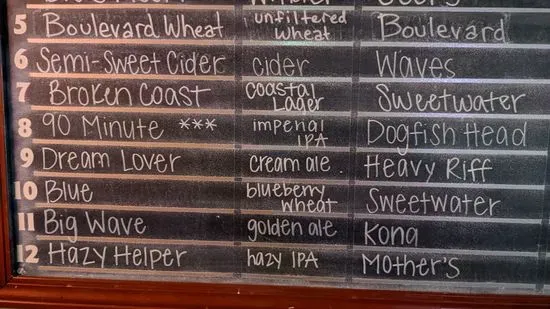 5 Boulevard Wheat unfiltered wheat Boulevard
6 Semi-Sweet Cider cider Waves
7 Broken Coast Coastal Lager Sweetwater
8 90 Minute *** imperial IPA Dogfish Head
9 Dream Lover cream ale. Heavy Riff
10 Blue blueberry wheat Sweetwater
11 Big Wave golden ale Kona
12 Hazy Helper hazy IPA Mother's